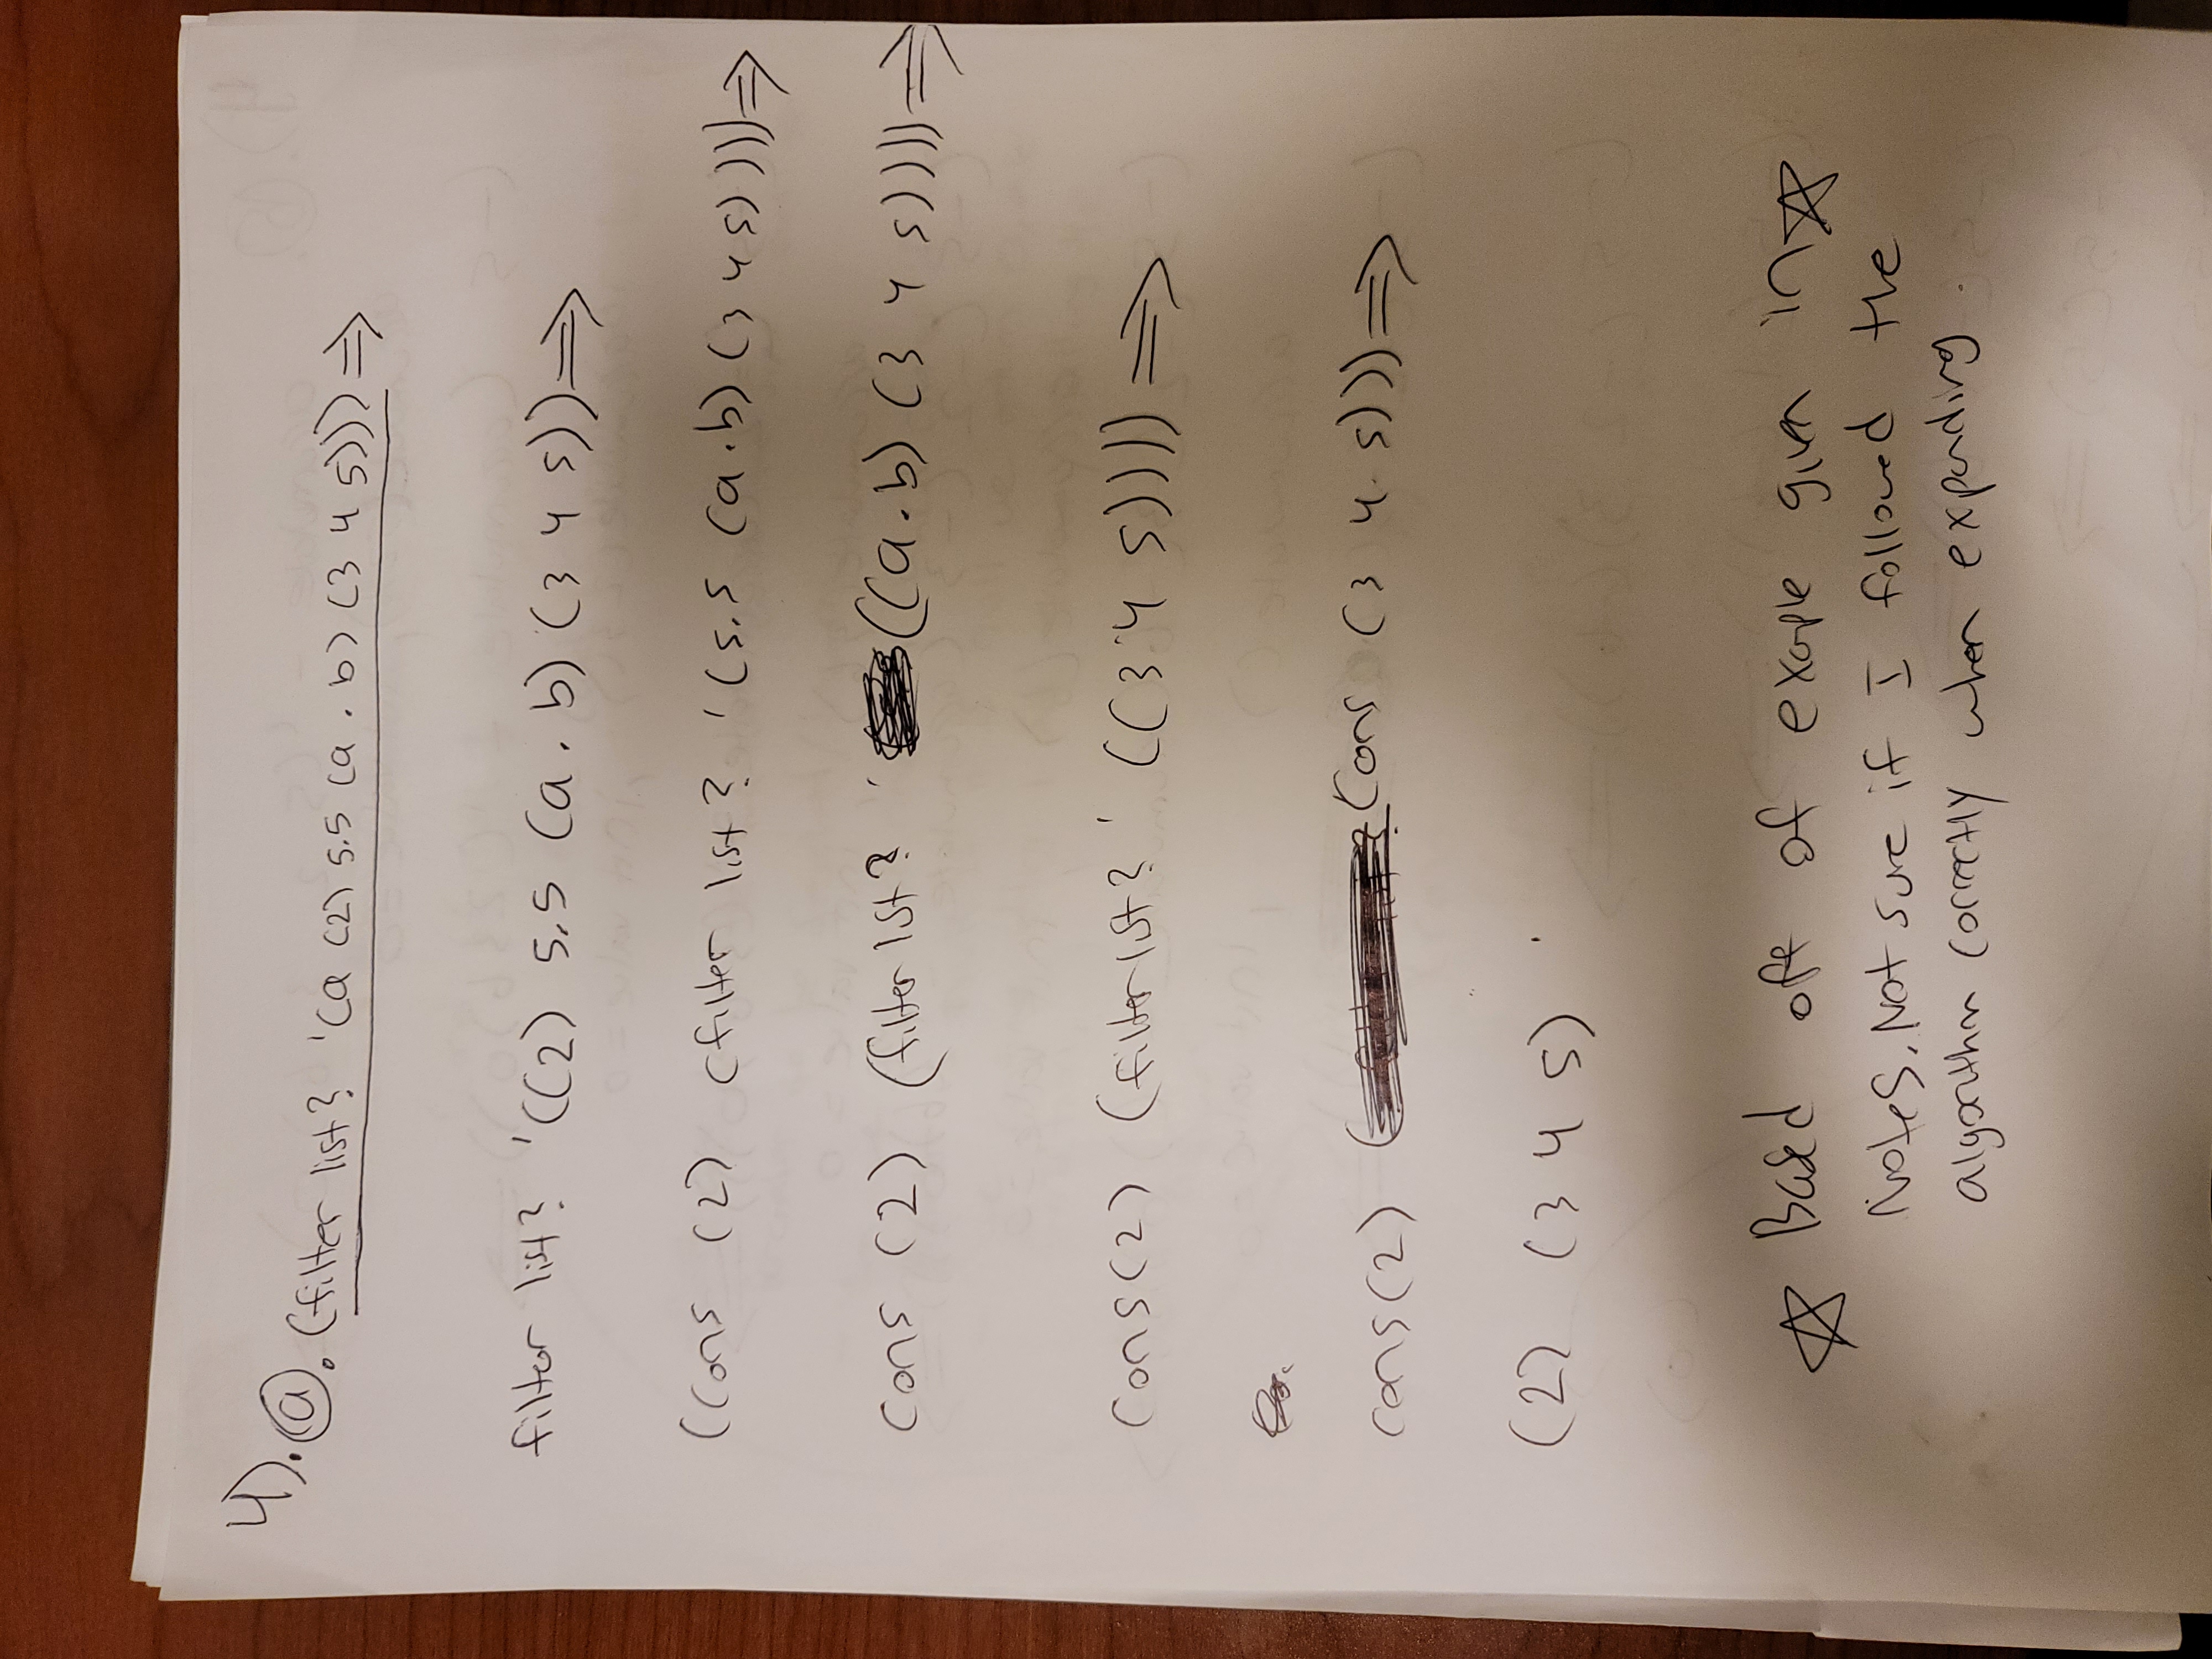 4). (a). (filter list? '(a (2) 5.5 (a . b) (3 4 5))) ⇒
filter list? '((2) 5.5 (a . b) (3 4 5)) ⇒
(cons (2) (filter list? '(5.5 (a . b) (3 4 5)))) ⇒
cons (2) (filter list? '((a . b) (3 4 5)))) ⇒
cons (2) (filter list? '((3 4 5)))) ⇒
cons (2) (cons (3 4 5))) ⇒
(2) (3 4 5)
☆ Based off of exaple given in ☆
Notes. Not sure if I followed the
algorithm correctly when expanding.